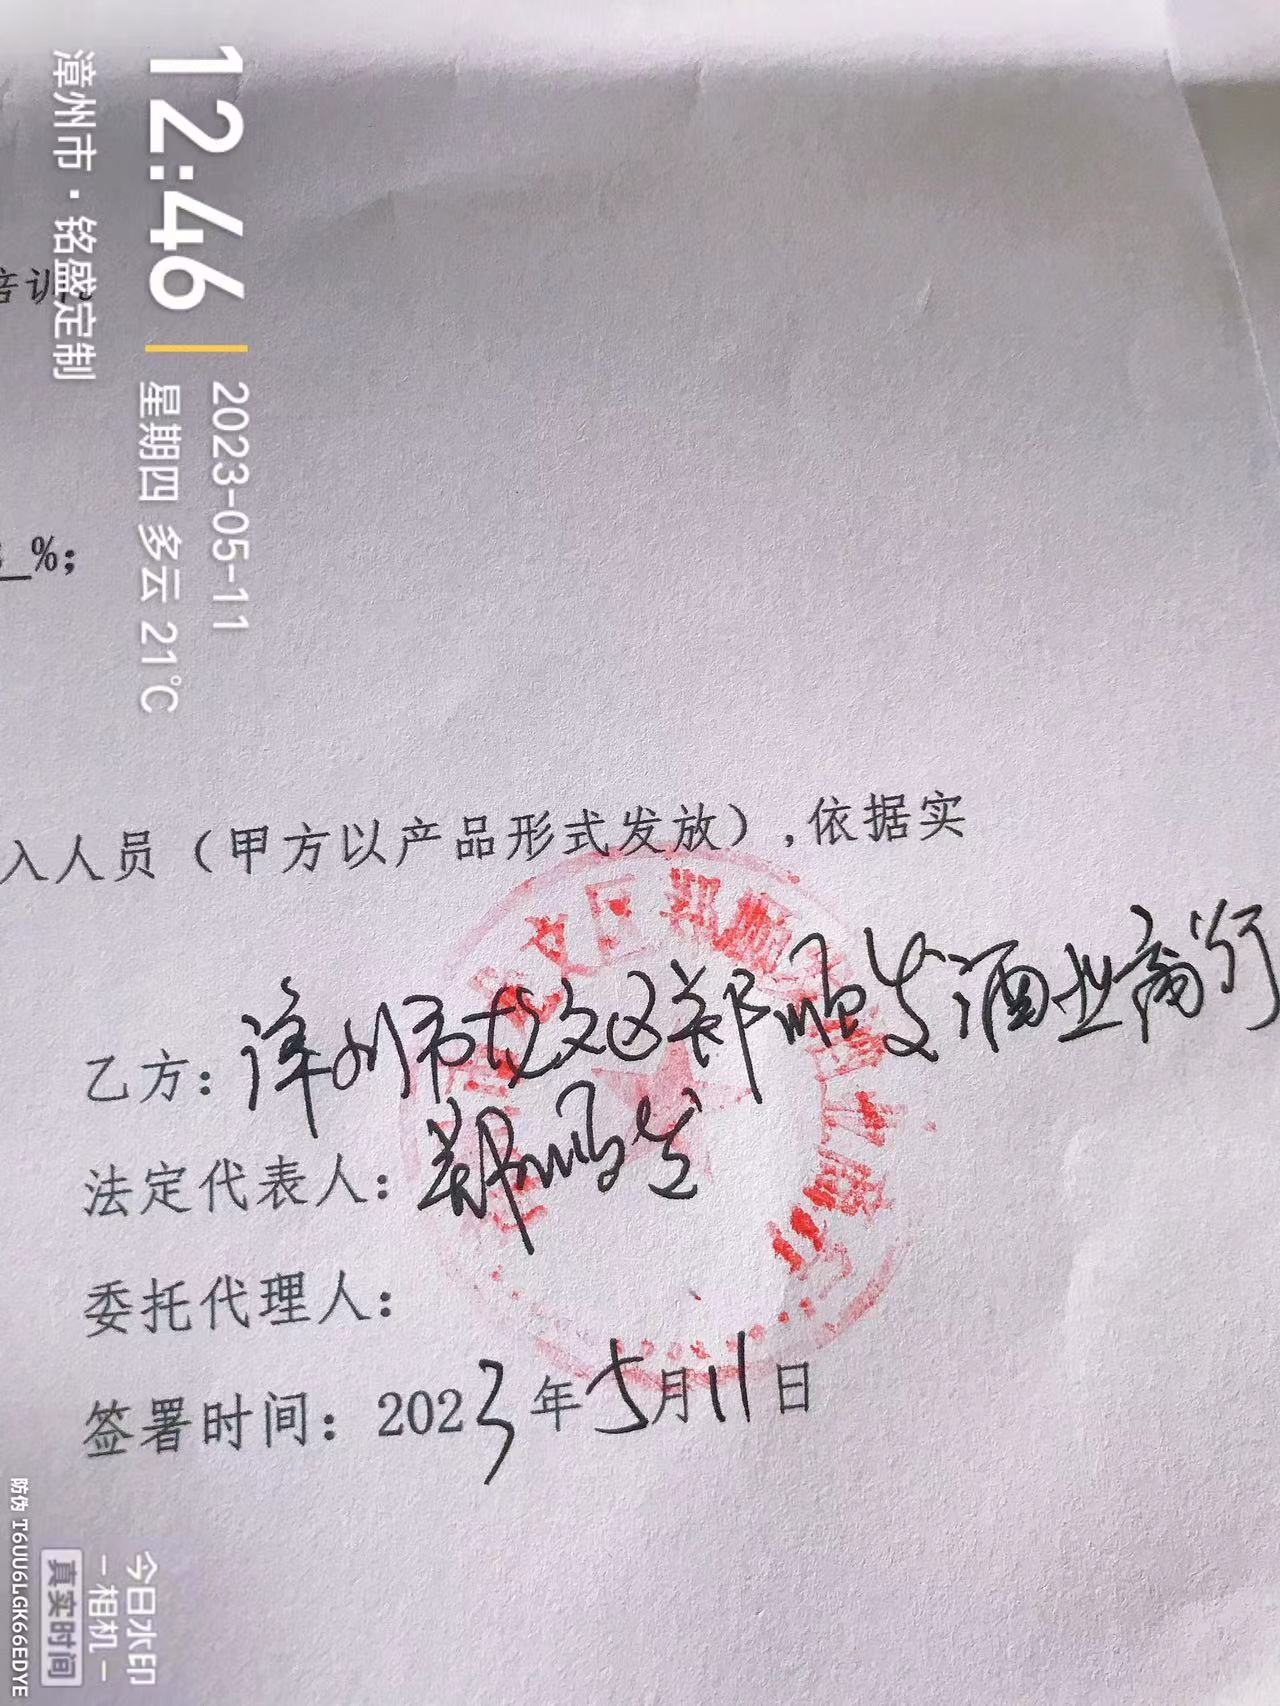 12:46
2023-05-11
星期四 多云 21℃
漳州市·铭盛定制
培训。
%；
入人员（甲方以产品形式发放），依据实
乙方：漳州市龙文区郑顺发酒业商行
法定代表人：郑顺发
委托代理人：
签署时间：2023年5月11日
文区郑顺
今日水印
-相机-
真实时间
防伪 T6UU6LGK66EDYE